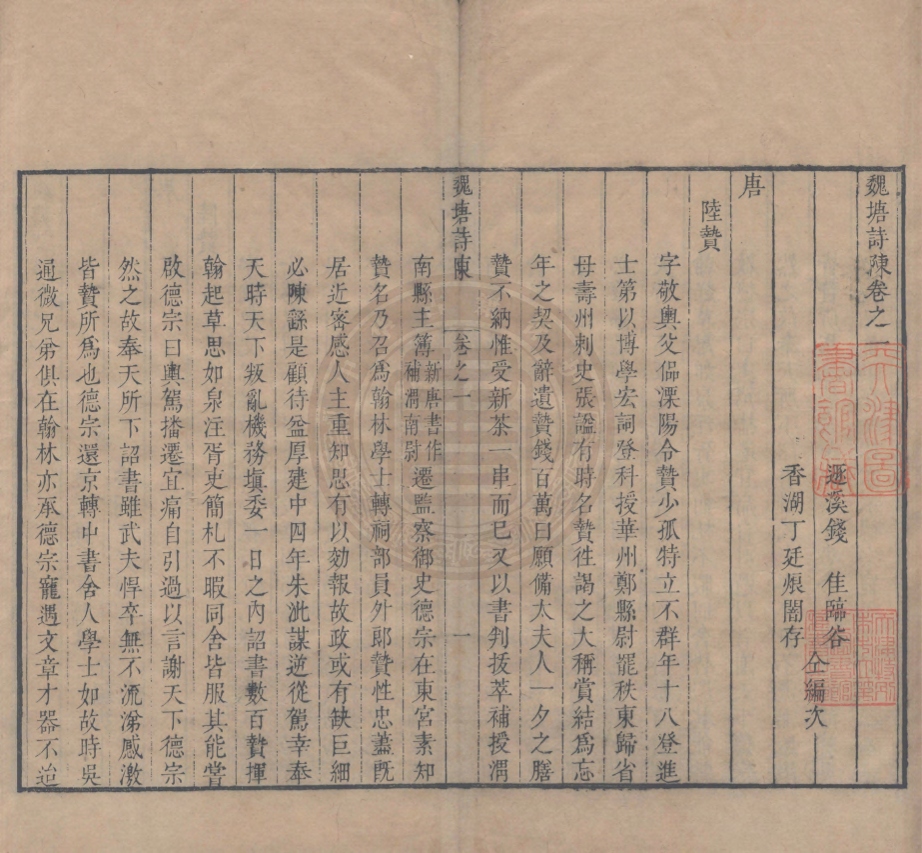 魏塘詩陳卷之一
遯溪錢 佳臨谷
香湖丁廷烺闇存
仝編次
唐
陸贄
字敬輿父偘溧陽令贄少孤特立不群年十八登進
士第以博學宏詞登科授華州鄭縣尉罷秩東歸省
母壽州刺史張謚有時名贄徃謁之大稱賞結爲忘
年之契及辭遺贄錢百萬曰願備太夫人一夕之膳
贄不納惟受新茶一串而已又以書判拔萃補授渭
魏塘詩陳 卷之一 一
南縣主簿新唐書作補渭南尉遷監察御史德宗在東宮素知
贄名乃召爲翰林學士轉祠部員外郎贄性忠藎旣
居近密感人主重知思有以効報故政或有缺巨細
必陳繇是顧待益厚建中四年朱泚謀逆從駕幸奉
天時天下叛亂機務塡委一日之內詔書數百贄揮
翰起草思如泉注胥吏簡札不暇同舍皆服其能嘗
啟德宗曰輿駕播遷宜痛自引過以言謝天下德宗
然之故奉天所下詔書雖武夫悍卒無不流涕感激
皆贄所爲也德宗還京轉中書舍人學士如故時吳
通微兄弟俱在翰林亦承德宗寵遇文章才器不迨